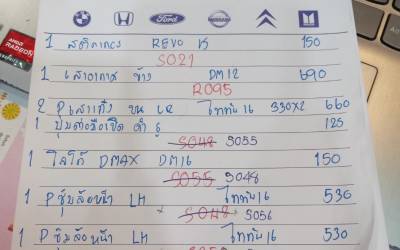 Ford
1 สติกเกอร์ REVO 15 150
SO21
1 เสาอากาศ ข้าง DM12 690
RO95
2 P เสาเก๋ง บน LR ไททัน16 330X2 660
1 ปุ่ม มือเปิด ดำ รู 125
SO48 SO55
1 โลโก้ DMAX DM16 150
SO55 SO48
1 P ซุ้มล้อหน้า LH ไททัน16 530
SO48 SO56
1 P ซุ้มล้อหน้า LH ไททัน16 530
AMD
RADEON